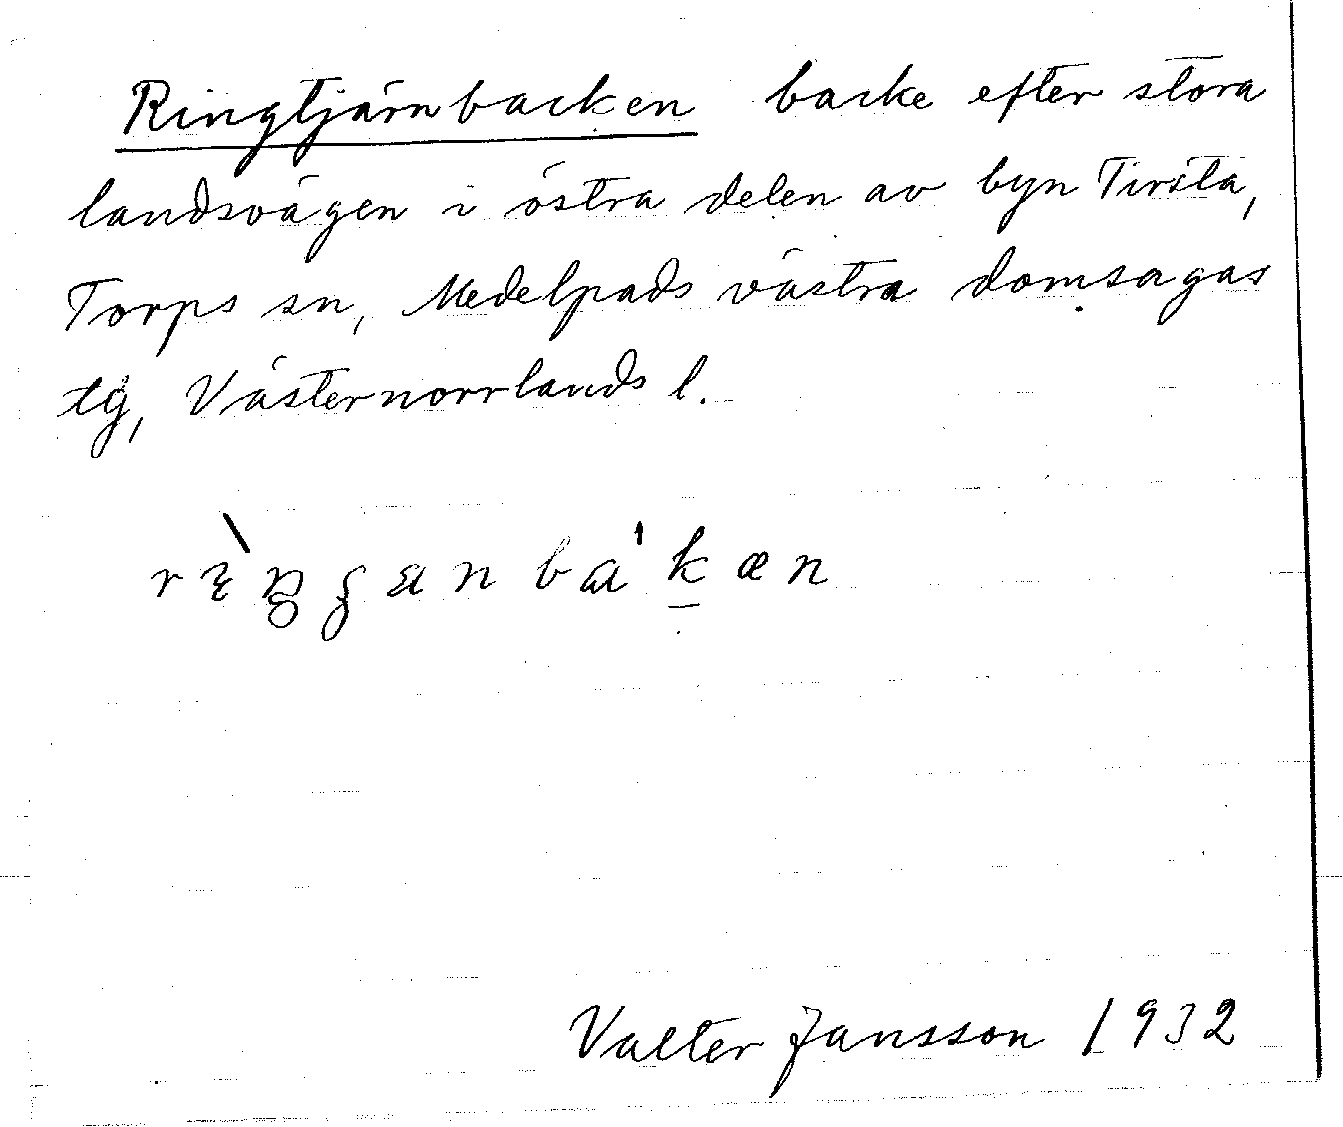 Ringtjärnbacken backe efter stora
landsvägen i östra delen av byn Tirsta,
Torps sn, Medelpads västra domsagas
tg, Västernorrlands l.
Valter Jansson 1932